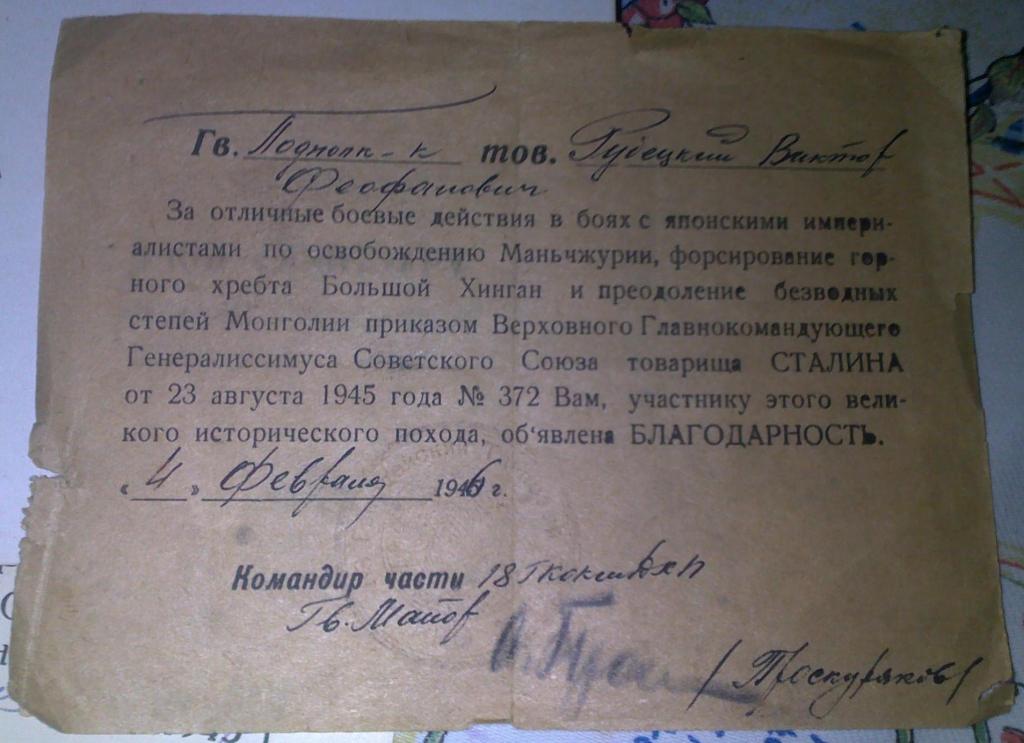 Гв. Подполк-к тов. Рудецкий Виктор
Феофанович
За отличные боевые действия в боях с японскими импери-
алистами по освобождению Маньчжурии, форсирование гор-
ного хребта Большой Хинган и преодоление безводных
степей Монголии приказом Верховного Главнокомандующего
Генералиссимуса Советского Союза товарища СТАЛИНА
от 23 августа 1945 года № 372 Вам, участнику этого вели-
кого исторического похода, об'явлена БЛАГОДАРНОСТЬ.
«4» Февраля 1946 г.
Командир части 18
Гв. Майор
/Проскуряков/